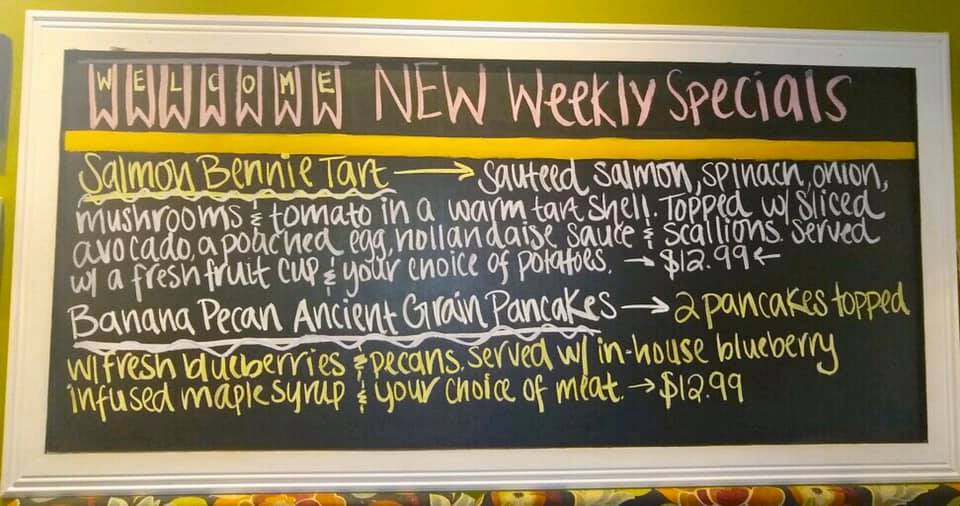 WELCOME NEW Weekly Specials
Salmon Bennie Tart → sauteed salmon, spinach, onion,
mushrooms & tomato in a warm tart shell. Topped w/ sliced
avocado, a poached egg, hollandaise sauce & scallions. Served
w/ a fresh fruit cup & your choice of potatoes. → $12.99 ←
Banana Pecan Ancient Grain Pancakes → 2 pancakes topped
w/ fresh blueberries & pecans. Served w/ in-house blueberry
infused maple syrup & your choice of meat. → $12.99